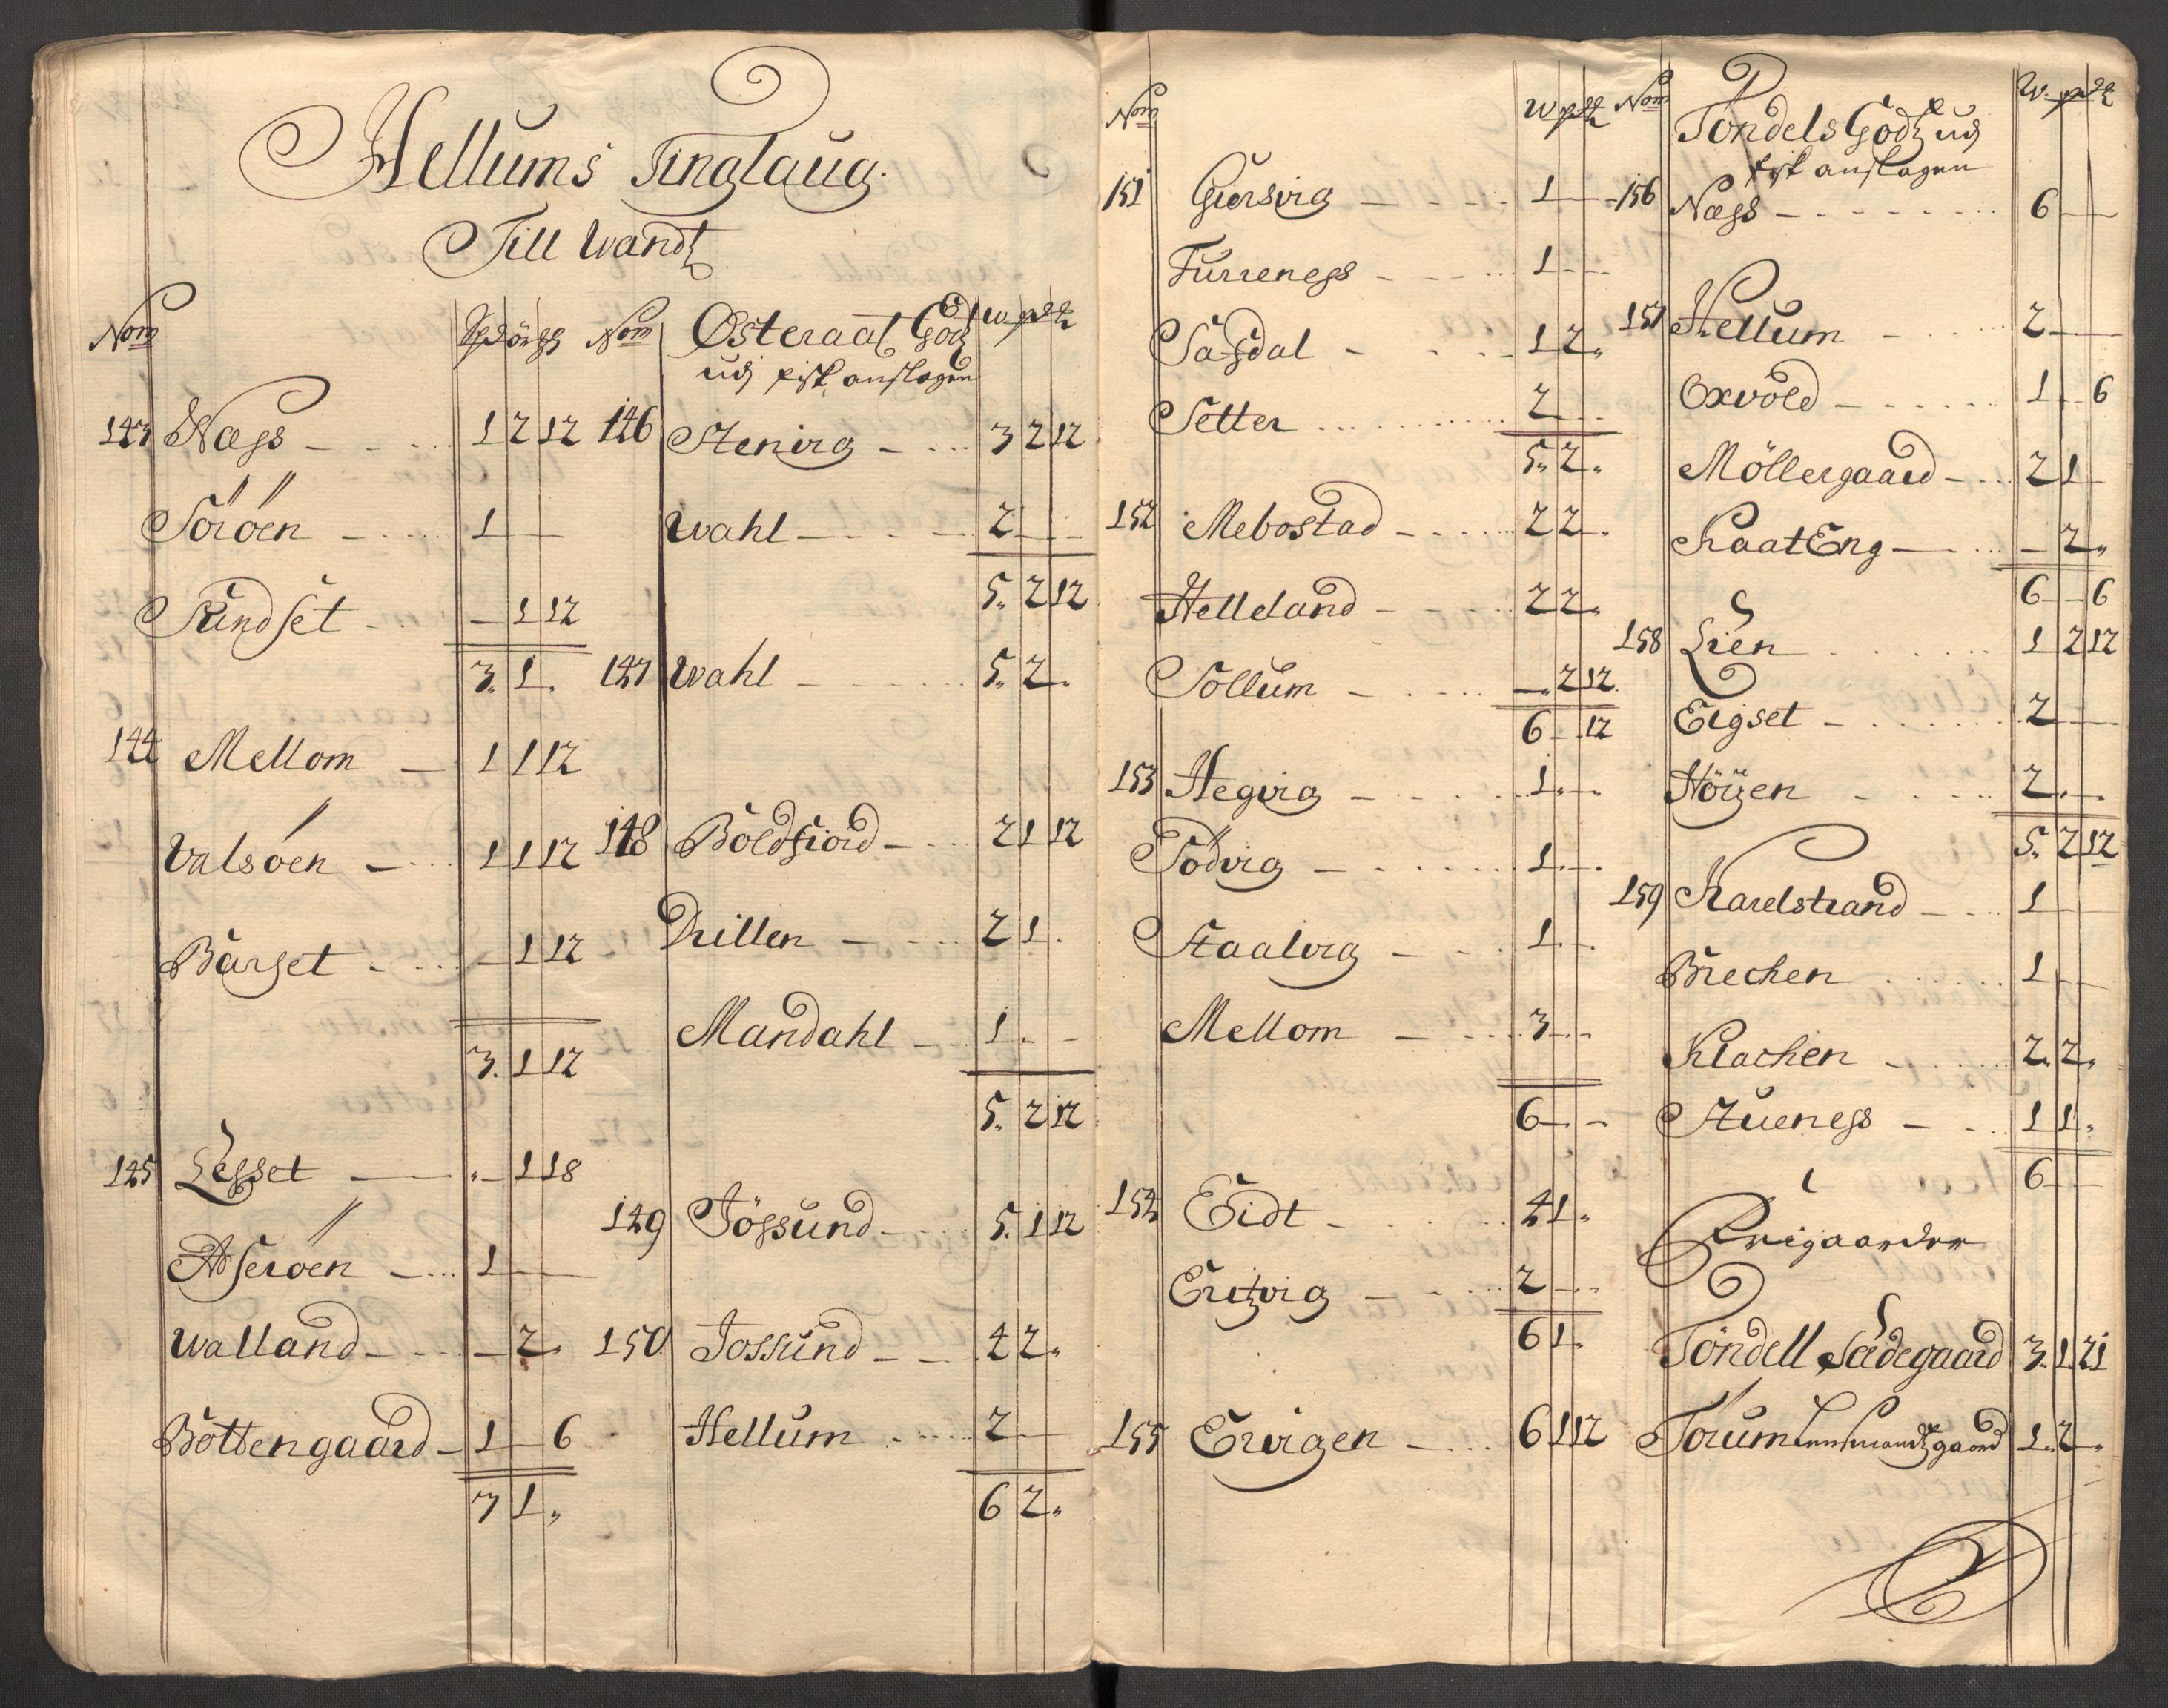 Hellums Tinglaug.
Till Wandz
Nom
143 Næss 1 2 12
Söröen 1
Sundset 1 12
3. 1.
144 Mellom 1 1 12
Valsöen 1 1 12
Barset 1 12
3. 1 12
145 Lesset 1 18
Asseröen 1
Walland 2.
Bottengaard 1 6
3 1
Nom Østeraat Godz W. p
udj fisk anslagen
146 Stenvig 3 2 12
Wahl 2
5. 2 12
147 Wahl 5. 2.
148 Boldfiord 2 1 12
Drillen 2 1.
Mandahl 1.
5. 2 12
149 Jössund 5. 1 12
150 Jossund 4 2.
Hellum 2
6 2.
Nom W p
151 Giersvig 1
Furreness 1
Sagdal 1 2.
Setter 2
5. 2.
152 Mebostad 2 2.
Helleland 2 2.
Sollum 2 12.
6 12
153 Hegvig 1.
Södvig 1.
Staalvig 1.
Mellom 3
6
154 Eidt 4 1.
Eritzvig 2
6 1.
155 Ervigen 6 1 12
Nom Tondels Godz udj W. p
fisk anslagen
156 Næss 6
157 Hellum 2
Oxvold 1 6
Möllergaard 2 1
KaatEng 2.
6 6
158 Lien 1 2 12
Eigset 2
Höÿen 2.
5. 2 12
159 Karelstrand 1
Brechen 1
Klachen 2. 2.
Stueness 1 1.
6
Frigaarder
Tondell Sædegaard 3. 1. 21
Torum Lensmandtzgaard 1. 2.